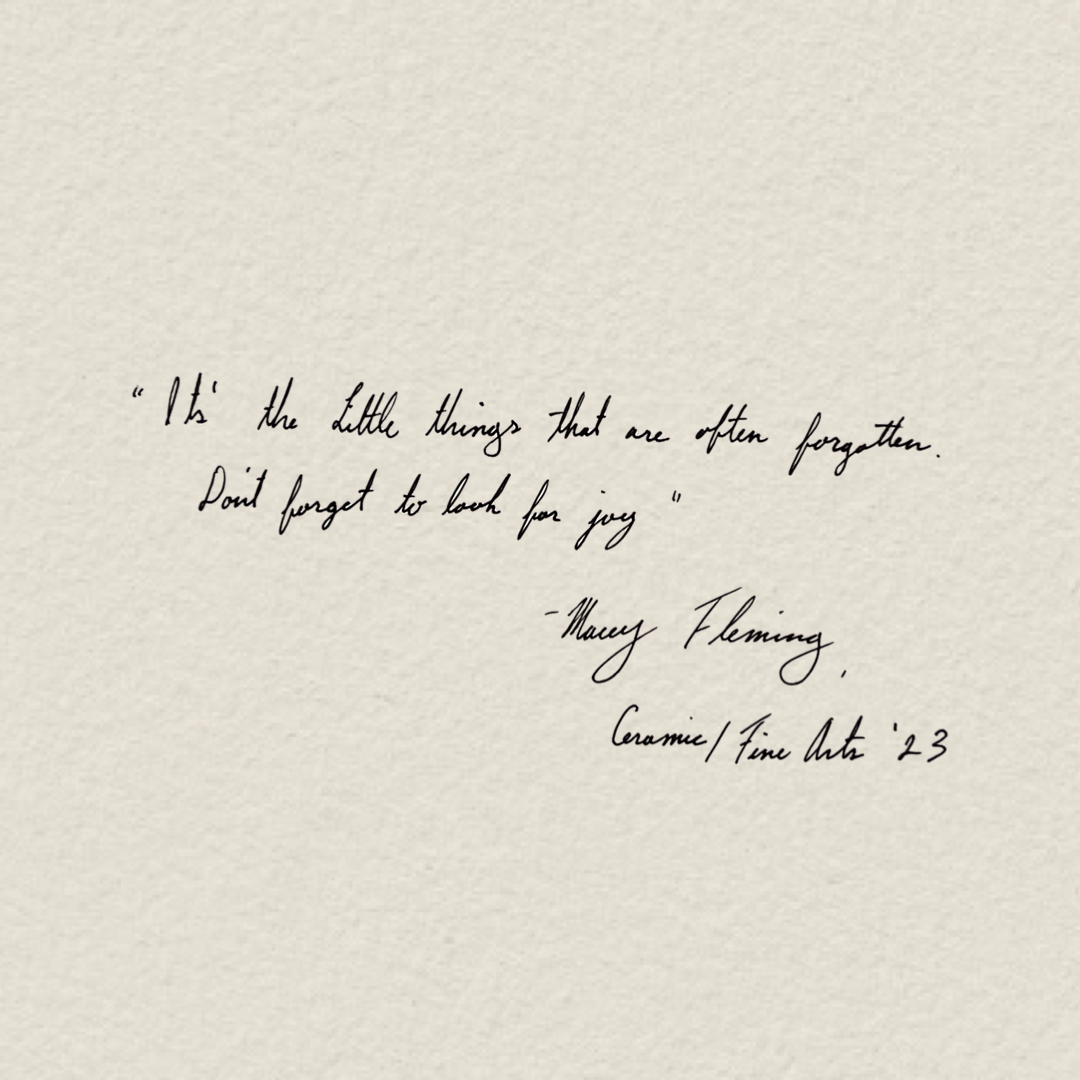 "Its' the Little things that are often forgotten.
Don't forget to look for joy"
-Macey Fleming,
Ceramic/Fine Arts '23